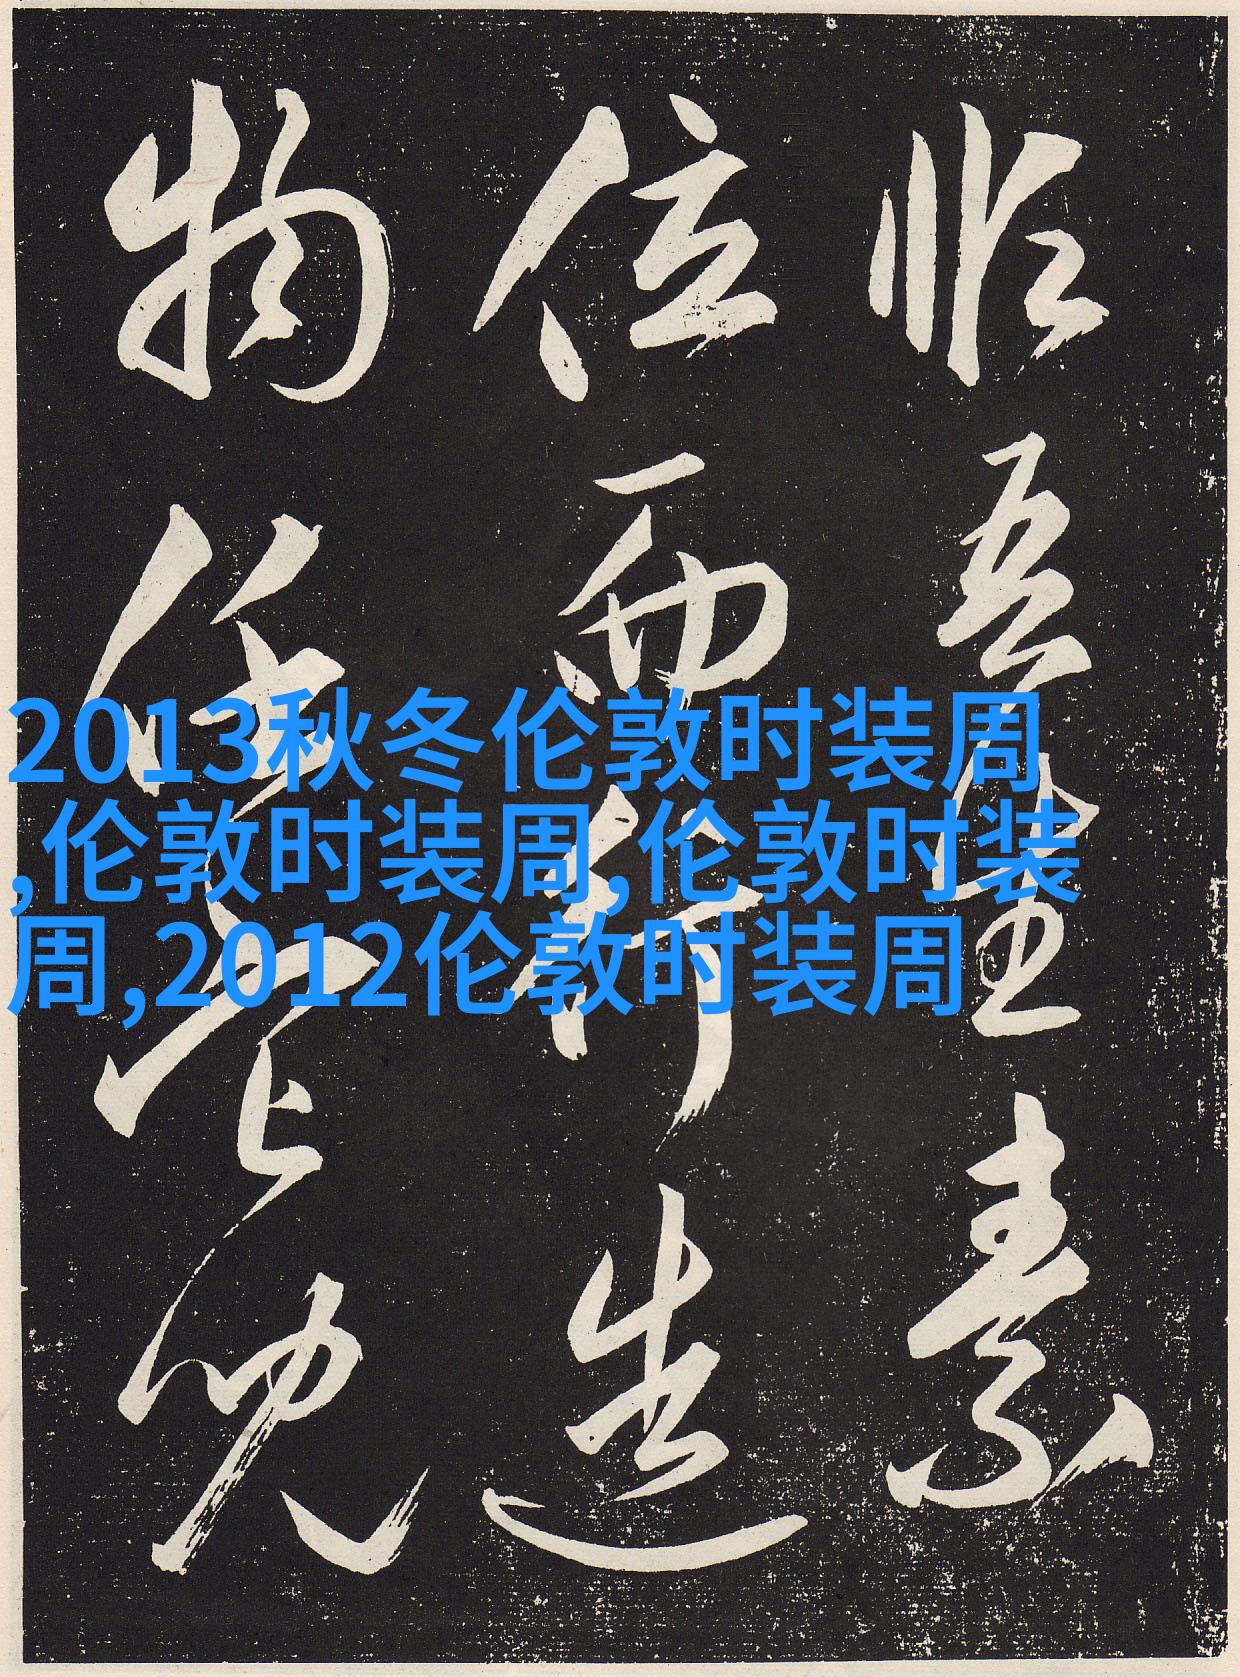 2013秋冬伦敦时装周
,伦敦时装周,伦敦时装
周,2012伦敦时装周
临吾素
位而行造
物